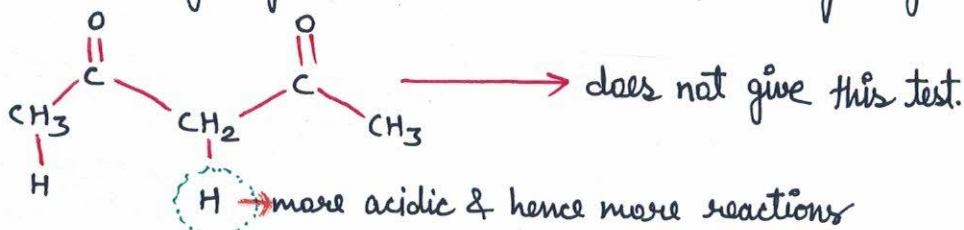 O O
C C
CH3 CH2 CH3
does not give this test.
H
H more acidic & hence more reactions